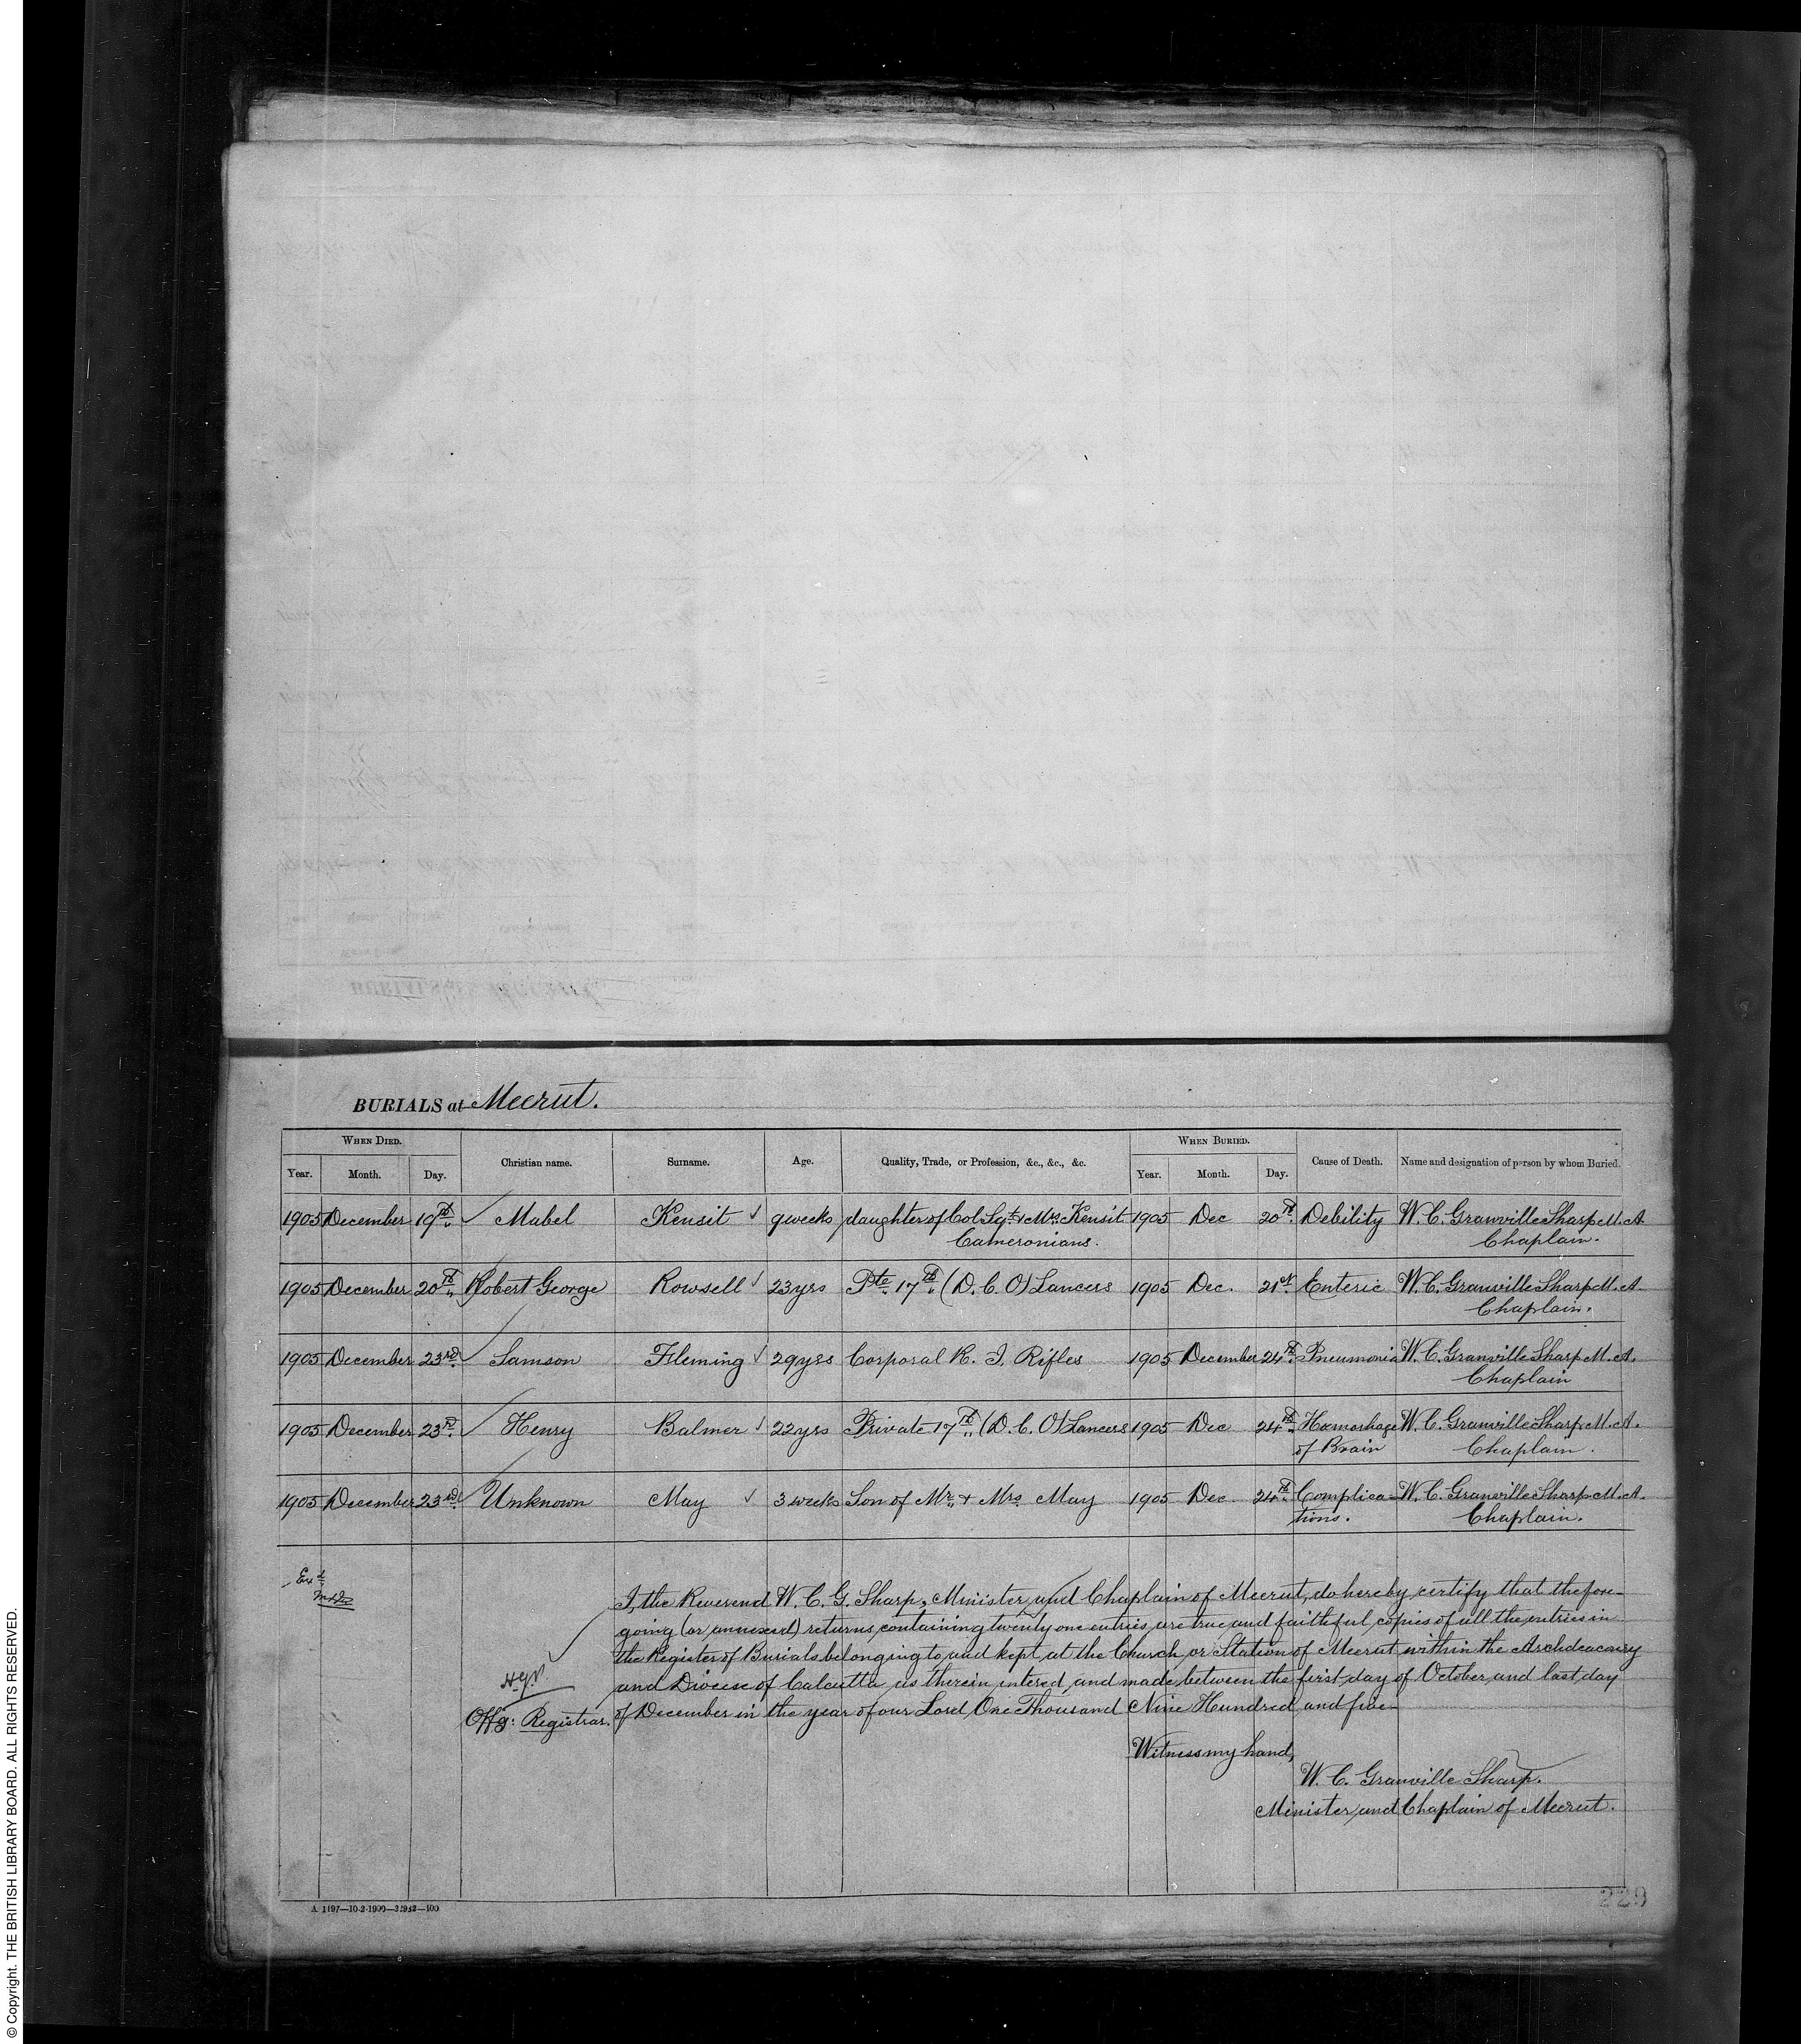 BURIALS at Meerut.
WHEN DIED. Christian name. Surname. Age. Quality, Trade, or Profession, &c., &c., &c. WHEN BURIED. Cause of Death. Name and designation of person by whom Buried.
Year. Month. Day. Year. Month. Day.
1905 December 19th Mabel Kensit 9 weeks daughter of Col Sgt. & Mrs. Kensit 1905 Dec 20th Debility W. C. Granville Sharp M. A.
Cameronians. Chaplain.
1905 December 20th Robert George Rowsell 23 yrs Pte. 17th (D. C. O) Lancers 1905 Dec. 21st Enteric W. C. Granville Sharp M. A.
Chaplain.
1905 December 23rd Samson Fleming 29 yrs Corporal R. I. Rifles 1905 December 24th Pneumonia W. C. Granville Sharp M. A.
Chaplain
1905 December 23rd Henry Balmer 22 yrs Private 17th (D. C. O) Lancers 1905 Dec 24th Hæmorhage W. C. Granville Sharp M. A.
of Brain Chaplain.
1905 December 23rd Unknown May 3 weeks Son of Mr. & Mrs. May 1905 Dec 24th Complica- W. C. Granville Sharp M. A.
tions. Chaplain.
Exd.
I, the Reverend W. C. G. Sharp, Minister and Chaplain of Meerut, do hereby certify that the fore-
going (or annexed) returns, containing twenty one entries, are true and faithful copies of all the entries in
the Register of Burials belonging to and kept at the Church or Station of Meerut within the Archdeaconry
and Diocese of Calcutta, as therein entered and made between the first day of October, and last day
Offg: Registrar. of December in the year of our Lord One Thousand Nine Hundred and five-
Witness my hand,
W. C. Granville Sharp.
Minister and Chaplain of Meerut.
A. 1197—10-2-1900—32942—100
229
© Copyright. THE BRITISH LIBRARY BOARD. ALL RIGHTS RESERVED.